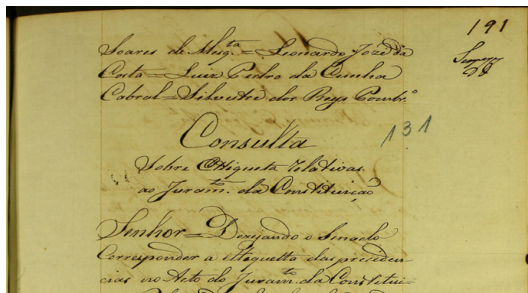 191
Soares de Mesq.ta = Leonardo Jozé da
Costa = Luiz Pedro da Cunha
Cabral = Silvestre dos Reys Pombr.o
Consulta
131
Sobre Etiqueta relativas
ao Juram.to da Constituição
Senhor = Dezejando o Senado
Corresponder a Etiquetta das preceden-
cias no Acto do Juram.to da Constitui-